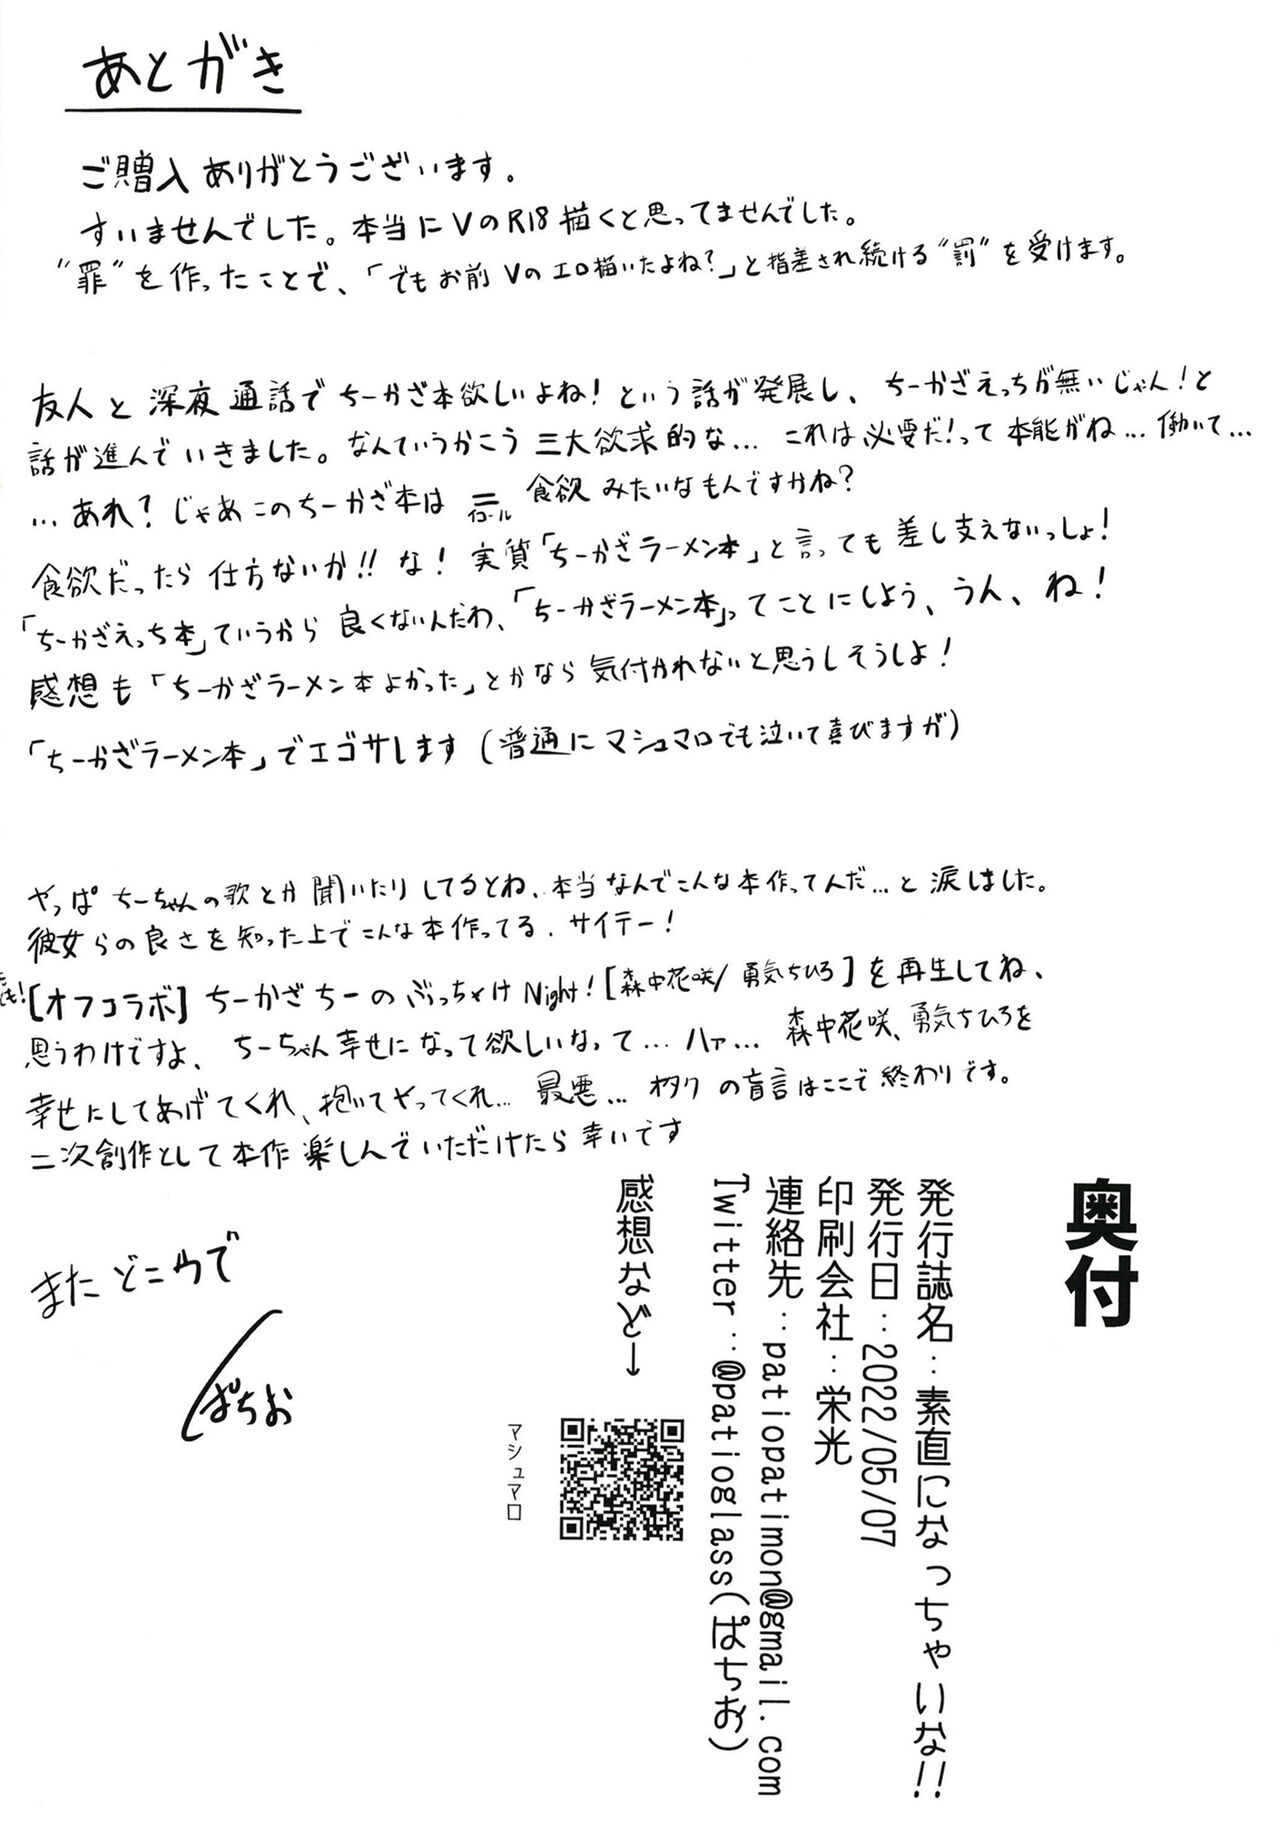 あとがき
ご贈入ありがとうございます。
すいませんでした。本当にVのR18描くと思ってませんでした。
"罪"を作ったことで、「でもお前Vのエロ描いたよね?」と指差され続ける"罰"を受けます。
友人と深夜通話でちーかざ本欲しいよね!という話が発展し、ちーかざえっちが無いじゃん!と
話が進んでいきました。なんていうかこう三大欲求的な…これは必要だ!って本能がね…働いて…
…あれ?じゃあこのちーかざ本は=イコール食欲みたいなもんですかね?
食欲だったら仕方ないか!!な!実質「ちーかざラーメン本」と言っても差し支えないっしょ!
「ちーかざえっち本」ていうから良くないんだわ、「ちーかざラーメン本」ってことにしよう、うん、ね!
感想も「ちーかざラーメン本よかった」とかなら気付かれないと思うしそうしよ!
「ちーかざラーメン本」でエゴサします(普通にマシュマロでも泣いて喜びますが)
やっぱちーちゃんの歌とか聞いたりしてるとね、本当なんでこんな本作ってんだ…と涙しました。
彼女らの良さを知った上でこんな本作ってる、サイテー!
【オフコラボ】ちーかざちーのぶっちゃけNight!【森中花咲/勇気ちひろ】を再生してね、
思うわけですよ、ちーちゃん幸せになって欲しいなって…ハァ…森中花咲、勇気ちひろを
幸せにしてあげてくれ、抱いてやってくれ…最悪…オタクの盲言はここで終わりです。
二次創作として本作楽しんでいただけたら幸いです
またどこかで
ぱちお
奥付
発行誌名:素直になっちゃいな!!
発行日:2022/05/07
印刷会社:栄光
連絡先:patiopatimon@gmail.com
Twitter:@patioglass(ぱちお)
感想など→
マシュマロ